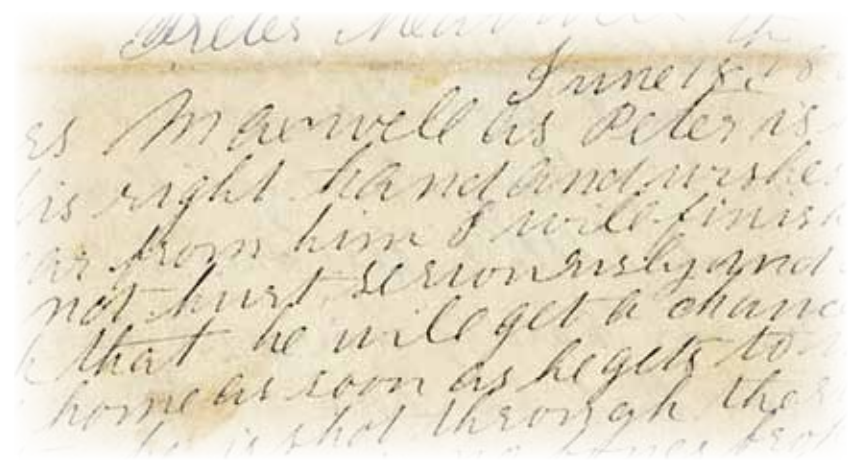 Peter Maxwell
th
June 18, 18
es Maxwell as Peter is
his right hand and wishes
ar from him I will finish
not hurt seriouusly and
that he will get a chance
home as soon as he gets to
he is shot through the
no bones bro